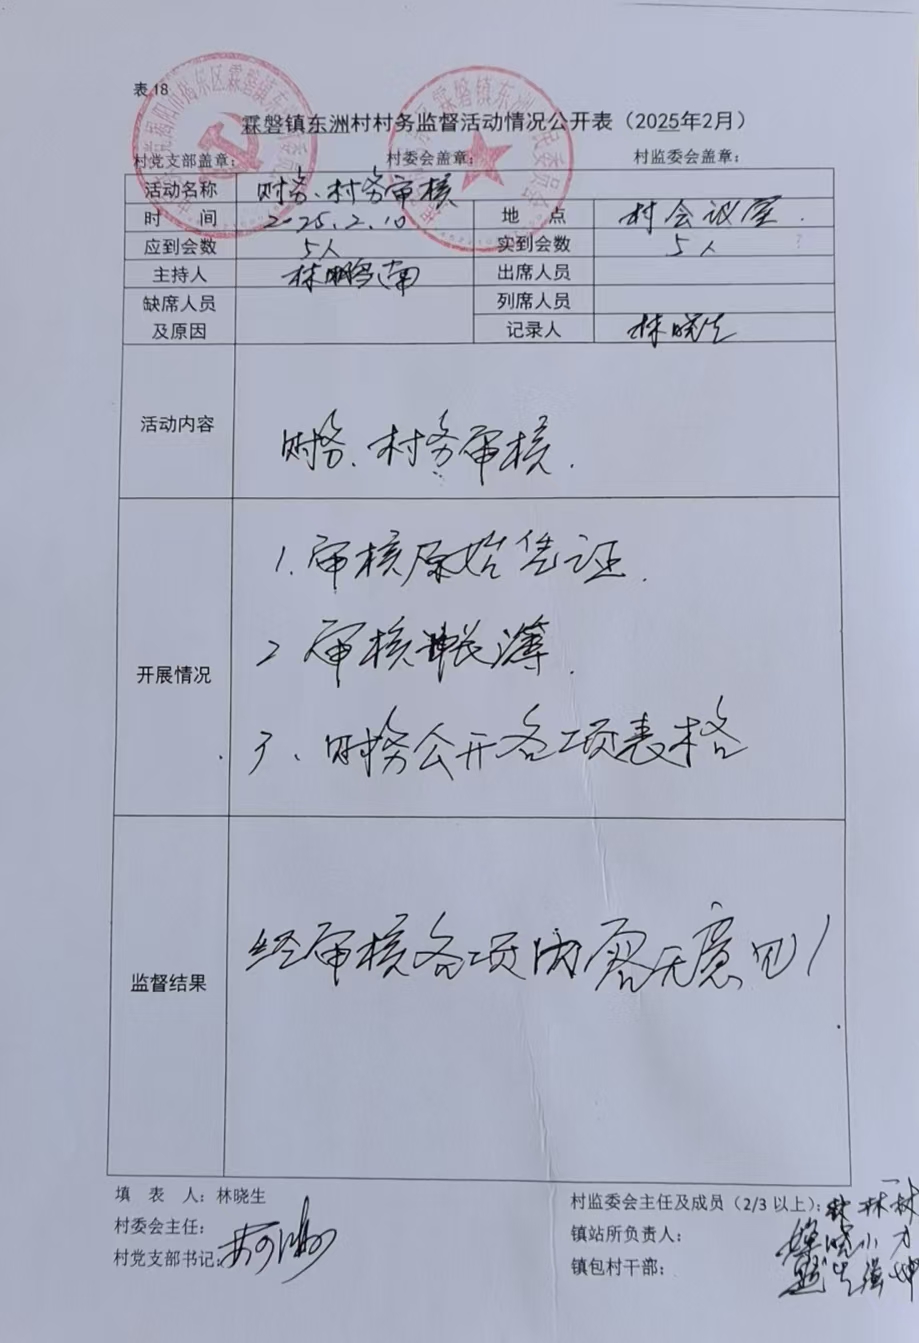 表18
霖磐镇东洲村村务监督活动情况公开表（2025年2月）
村党支部盖章： 村委会盖章： 村监委会盖章：
活动名称 财务、村务审核
时 间 2025.2.10 地 点 村会议室.
应到会数 5人 实到会数 5人
主持人 林鹏 出席人员
缺席人员及原因 列席人员
记录人 林晓生
活动内容 财务、村务审核.
开展情况
1.审核原始凭证.
2 审核帐簿.
3、财务公开各项表格
监督结果 经审核各项内容无意见!
填 表 人：林晓生
村委会主任：
村党支部书记：
村监委会主任及成员（2/3以上）：林 林 林
镇站所负责人： 晓 小
镇包村干部： 生 强